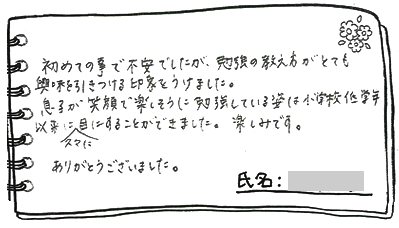 初めての事で不安でしたが、勉強の教え方がとても
興味を引きつける印象をうけました。
息子が笑顔で楽しそうに勉強している姿は小学校低学年
以来に目にすることができました。楽しみです。
久々に
ありがとうございました。
氏名: